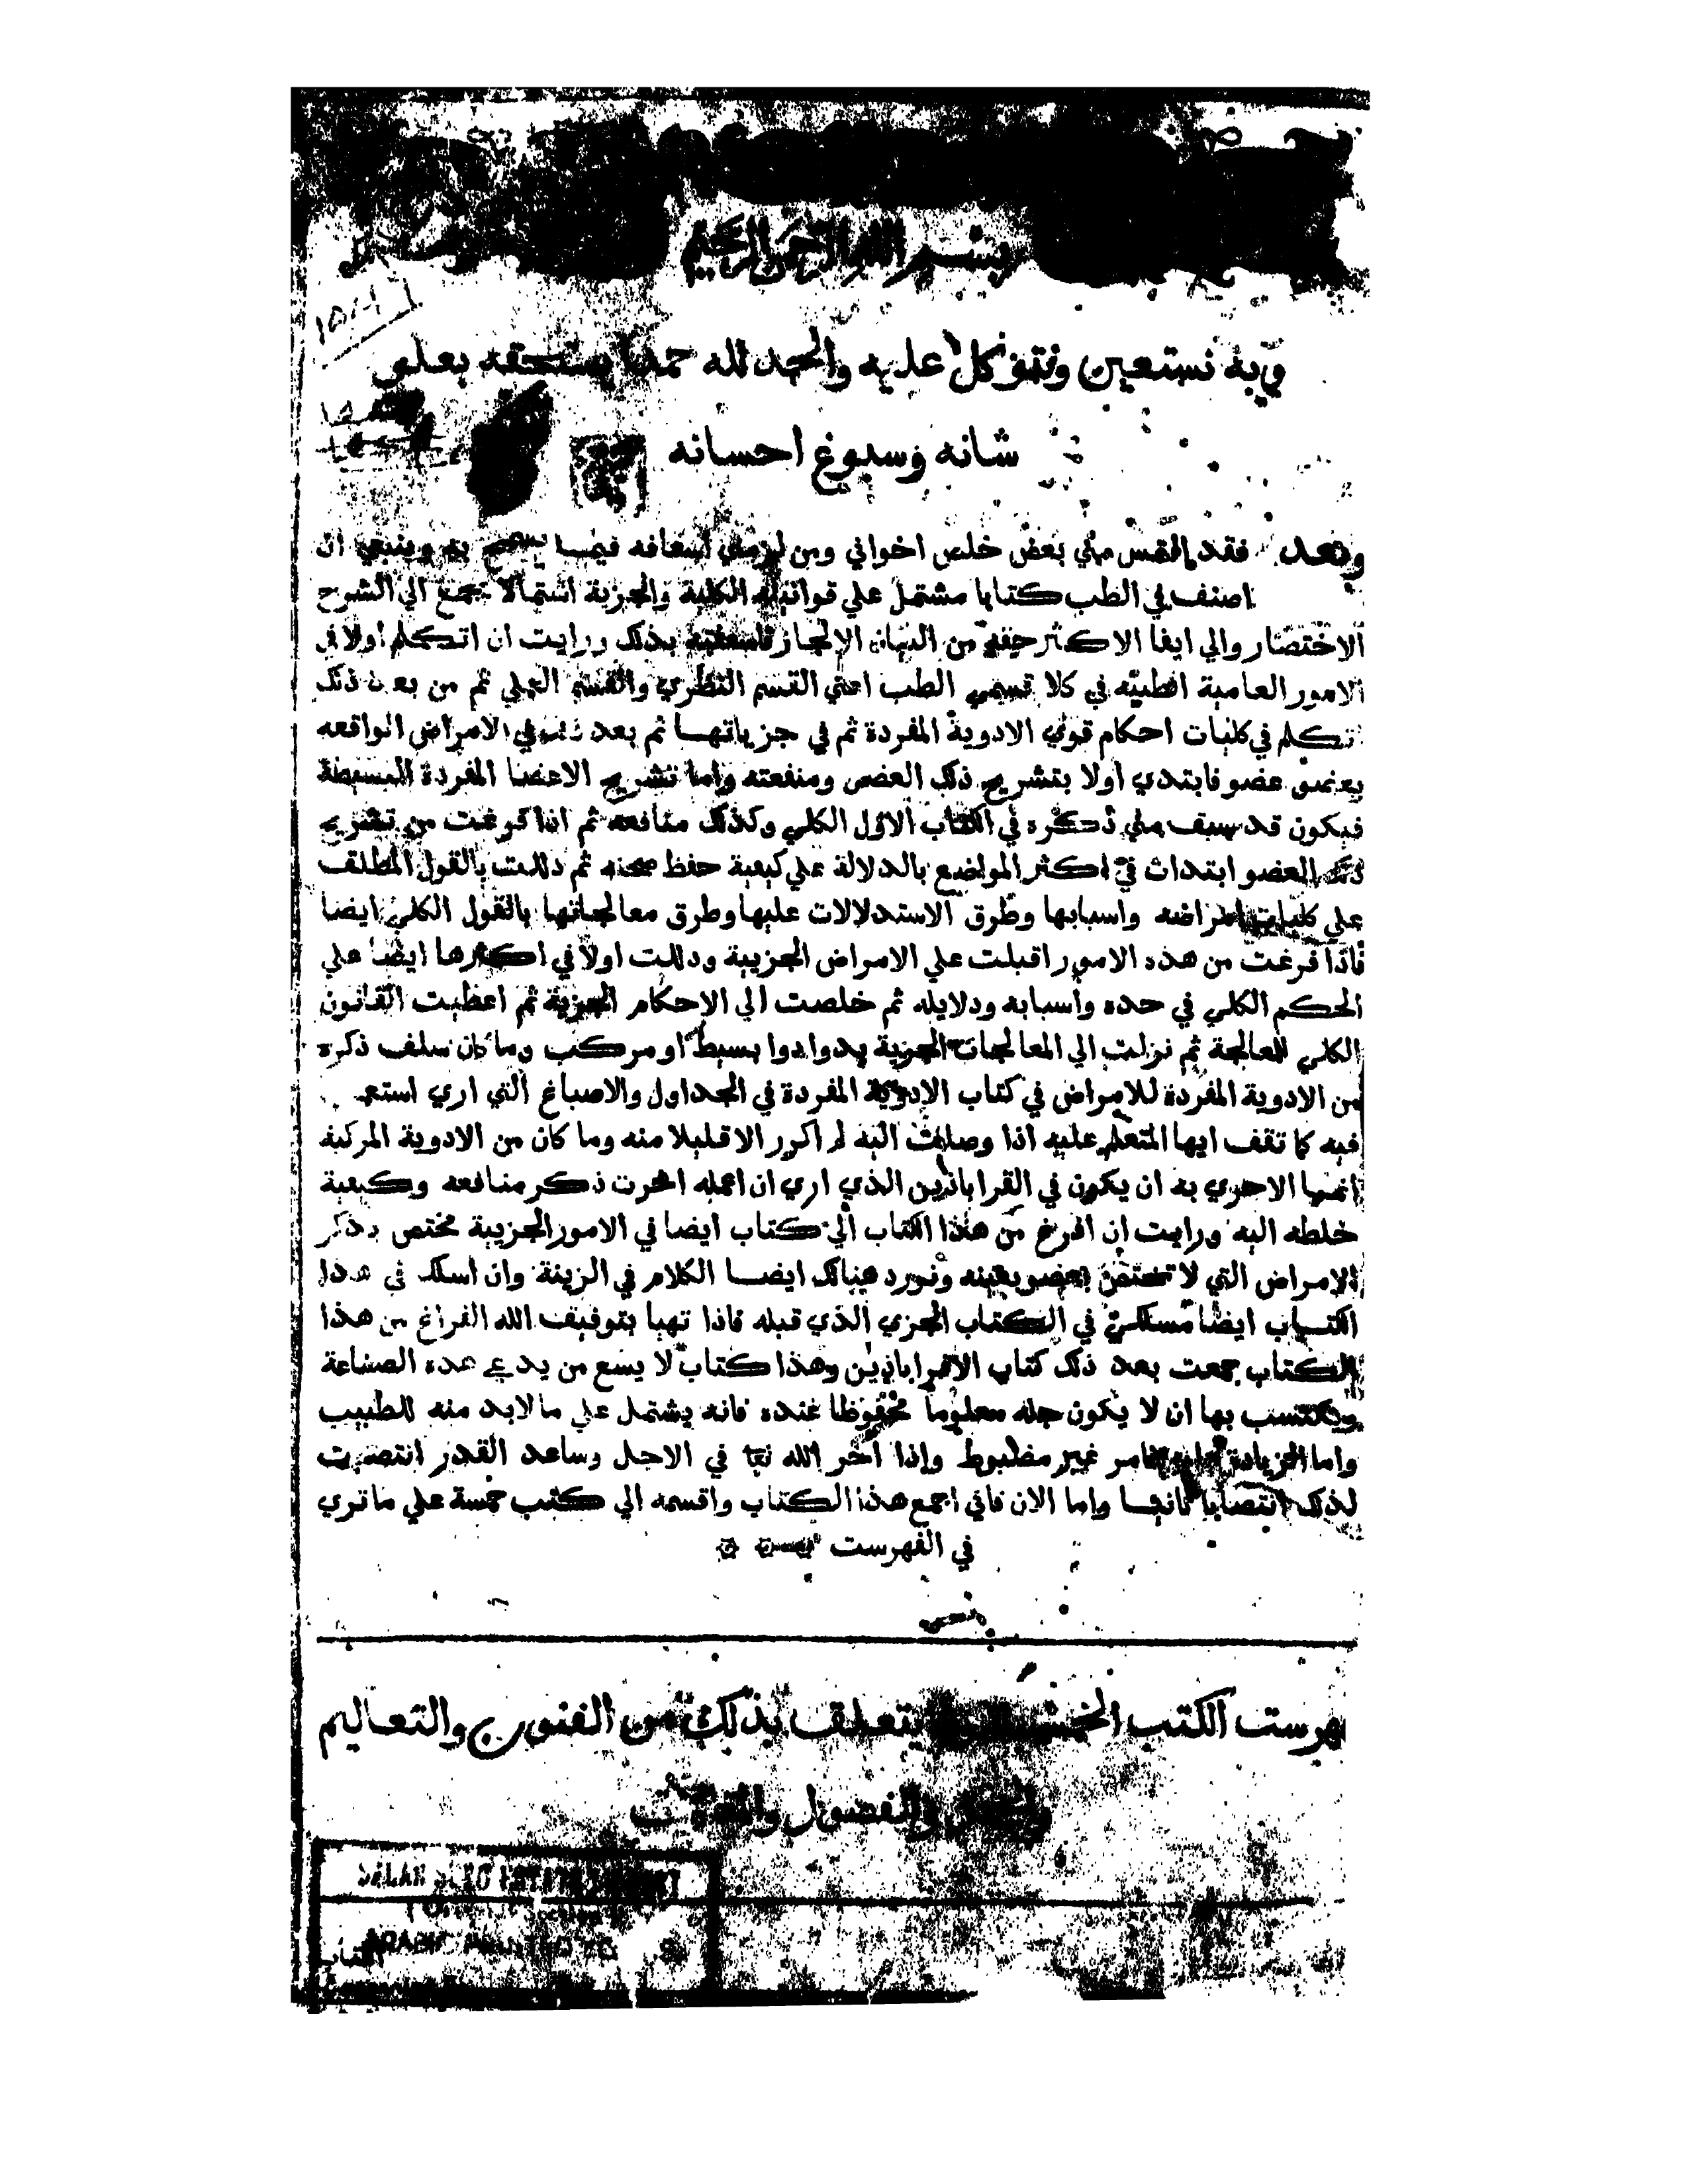 بسم الله الرحمن الرحيم
وبه نستعين ونتوكل عليه والحمد لله حمدا يستحقه بعلو
شانه وسبوغ احسانه
وبعد فقد التمس مني بعض خلص اخواني ومن لزمني اسعافه فيما به وينبغي ان
اصنف في الطب كتابا مشتمل علي قوانينه الكلية والجزية اشتمالا يجمع الي الشرح
الاختصار والي ايفا الاكثر حقه من البيان الايجاز فاسعفته بذلك ورايت ان اتكلم اولا في
الامور العامية الطبيه في كلا قسمي الطب اعني القسم النظري والقسم العملي ثم من بعد ذلك
نتكلم في كليات احكام قوي الادوية المفردة ثم في جزياتها ثم بعد ذلك في الامراض الواقعه
بعضو عضو فابتدي اولا بتشريح ذلك العضو ومنفعته واما تشريح الاعضا المفردة البسيطة
فيكون قد سبق مني ذكره في الكتاب الاول الكلي وكذلك منافعه ثم اذا فرغت من تشريح
ذلك العضو ابتدات في اكثر المواضع بالدلالة علي كيفية حفظ صحته ثم دللت بالقول المطلق
علي كليات امراضه واسبابها وطرق الاستدلالات عليها وطرق معالجاتها بالقول الكلي ايضا
فاذا فرغت من هذه الامور اقبلت علي الامراض الجزيية ودللت اولا في اكثرها ايضا علي
الحكم الكلي في حده واسبابه ودلايله ثم خلصت الي الاحكام الجزية ثم اعطيت القانون
الكلي للمعالجة ثم نزلت الي المعالجات الجزية بدوا دوا بسيط او مركب وما كان سلف ذكره
من الادوية المفردة للامراض في كتاب الادوية المفردة في الجداول والاصباغ التي اري استعم
فيه كما تقف ايها المتعلم عليه اذا وصلت اليه لم اكرر الا قليلا منه وما كان من الادوية المركبة
انما الاحري به ان يكون في القراباذين الذي اري ان اعمله اخرت ذكر منافعه وكيفية
خلطه اليه ورايت ان افرغ من هذا الكتاب الي كتاب ايضا في الامور الجزيية مختص بذكر
الامراض التي لا تختص بعضو بعينه ونورد هنالك ايضا الكلام في الزينة وان اسلك في هذا
الكتاب ايضا مسلكي في الكتاب الجزي الذي قبله فاذا تهيا بتوفيق الله الفراغ من هذا
الكتاب جمعت بعد ذلك كتاب الاقراباذين وهذا كتاب لا يسع من يدعي هذه الصناعة
ويكتسب بها ان لا يكون جله معلوما محفوظا عنده فانه يشتمل علي ما لا بد منه للطبيب
واما الزيادة عليه فامر غير مضبوط وإذا اخر الله تعا في الاجل وساعد القدر انتصبت
لذلك انتصابا ثانيا واما الان فاني اجمع هذا الكتاب واقسمه الي كتب خمسة علي ما تري
في الفهرست
فهرست الكتب الخمسة يتعلق بذلك من الفنون والتعاليم
والجمل والفصول
SALAR
ARABIC PRINTED
الكتاب